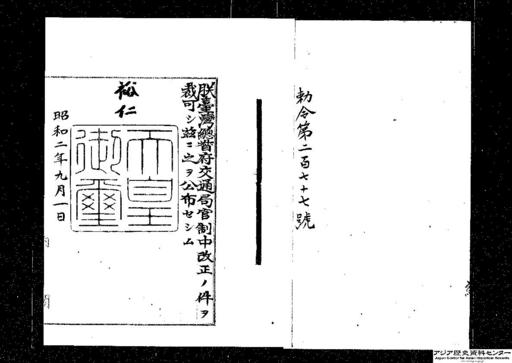 勅令第二百七十七號
朕臺灣總督府交通局官制中改正ノ件ヲ
裁可シ茲ニ之ヲ公布セシム
裕仁
天皇
御璽
昭和二年九月一日
アジア歴史資料センター
Japan Center for Asian Historical Records